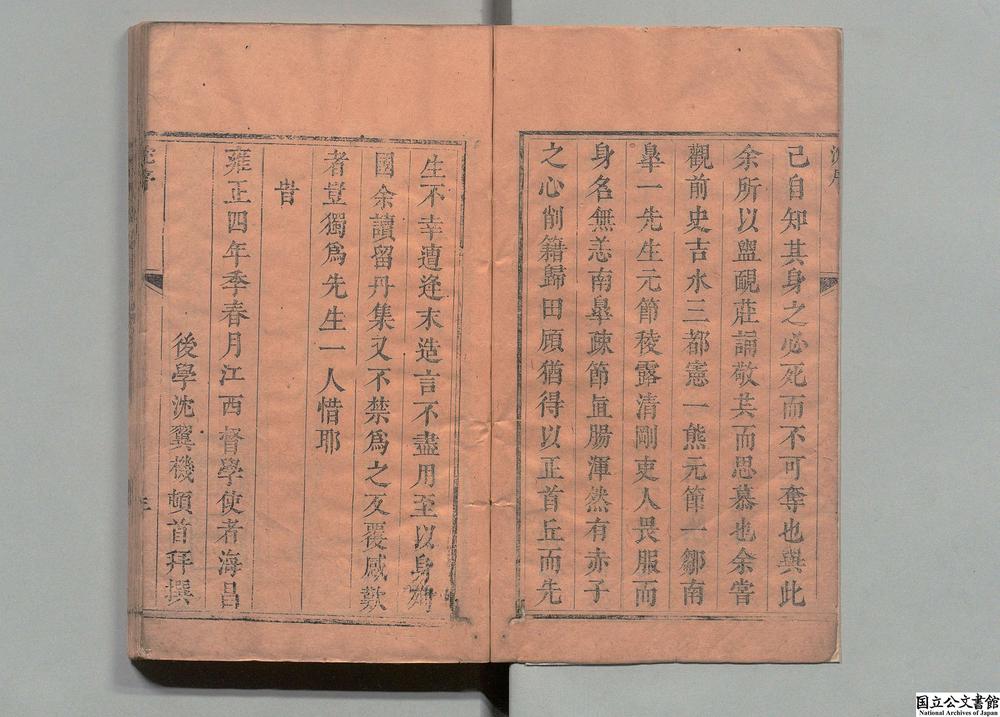 己自知其身之必死而不可奪也與此
余所以盥䩄莊誦敬其而思慕也余嘗
觀前史吉水三都憲一熊元節一鄒南
臯一先生元節稜露清剛吏人畏服而
身名無恙南臯疎節直腸渾然有赤子
之心削籍歸田頋猶得以正首丘而先
生不幸遭逢末造言不盡用至以身殉
國余讀留丹集又不禁爲之反覆感歎
者豈獨爲先生一人惜耶
旹
雍正四年季春月江西督學使者海昌
後學沈翼機頓首拜撰
沈序
国立公文書館
National Archives of Japan